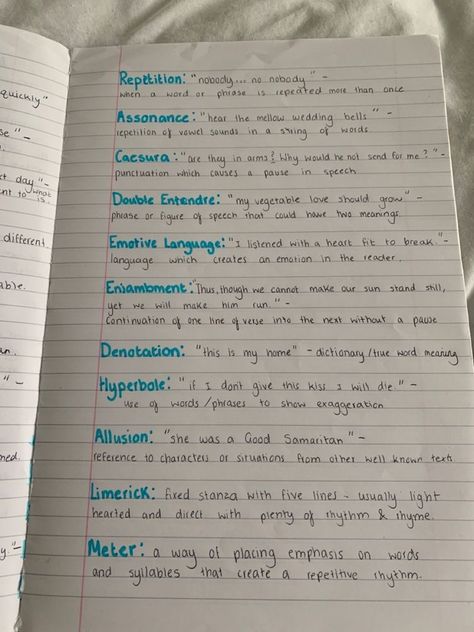 quickly"
se" -
ct day" -
what
nt to is
different
able.
an.
" -
ned.
y." -
Repetition: "nobody... no nobody" -
when a word or phrase is repeated more than once
Assonance: "hear the mellow wedding bells" -
repetition of vowel sounds in a string of words
Caesura: "are they in arms? Why would he not send for me?" -
punctuation which causes a pause in speech
Double Entendre: "my vegetable love should grow" -
phrase or figure of speech that could have two meanings.
Emotive Language: "I listened with a heart fit to break." -
language which creates an emotion in the reader.
Enjambment: "Thus, though we cannot make our sun stand still,
yet we will make him run." -
Continuation of one line of verse into the next without a pause
Denotation: "this is my home" - dictionary/true word meaning
Hyperbole: "if I don't give this kiss I will die." -
use of words/phrases to show exaggeration
Allusion: "she was a Good Samaritan" -
reference to characters or situations from other well known texts
Limerick: fixed stanza with five lines - usually light
hearted and direct with plenty of rhythm & rhyme.
Meter: a way of placing emphasis on words
and syllables that create a repetitive rhythm.